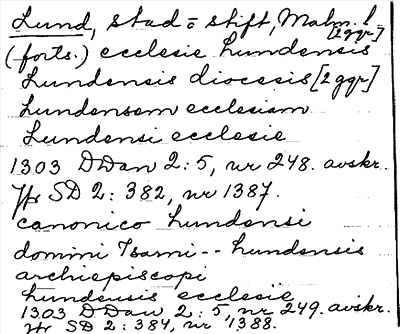 Lund, stad o stift, Malm. l.
(forts.) ecclesie Lundensis [2 ggr]
Lundensis diocesis [2 ggr]
Lundensem ecclesiam
Lundensi ecclesie
1303 DDan 2:5, nr 248. avskr.
Jfr SD 2: 382, nr 1387.
canonico Lundensi
domini Isarni -- Lundensis
archiepiscopi
Lundensis ecclesie
1303 DDan 2:5, nr 249. avskr.
Jfr SD 2: 384, nr 1388.